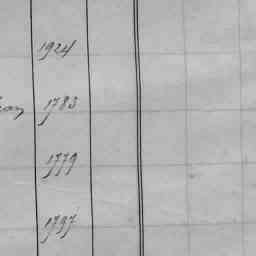 1924
1783
1779
1797